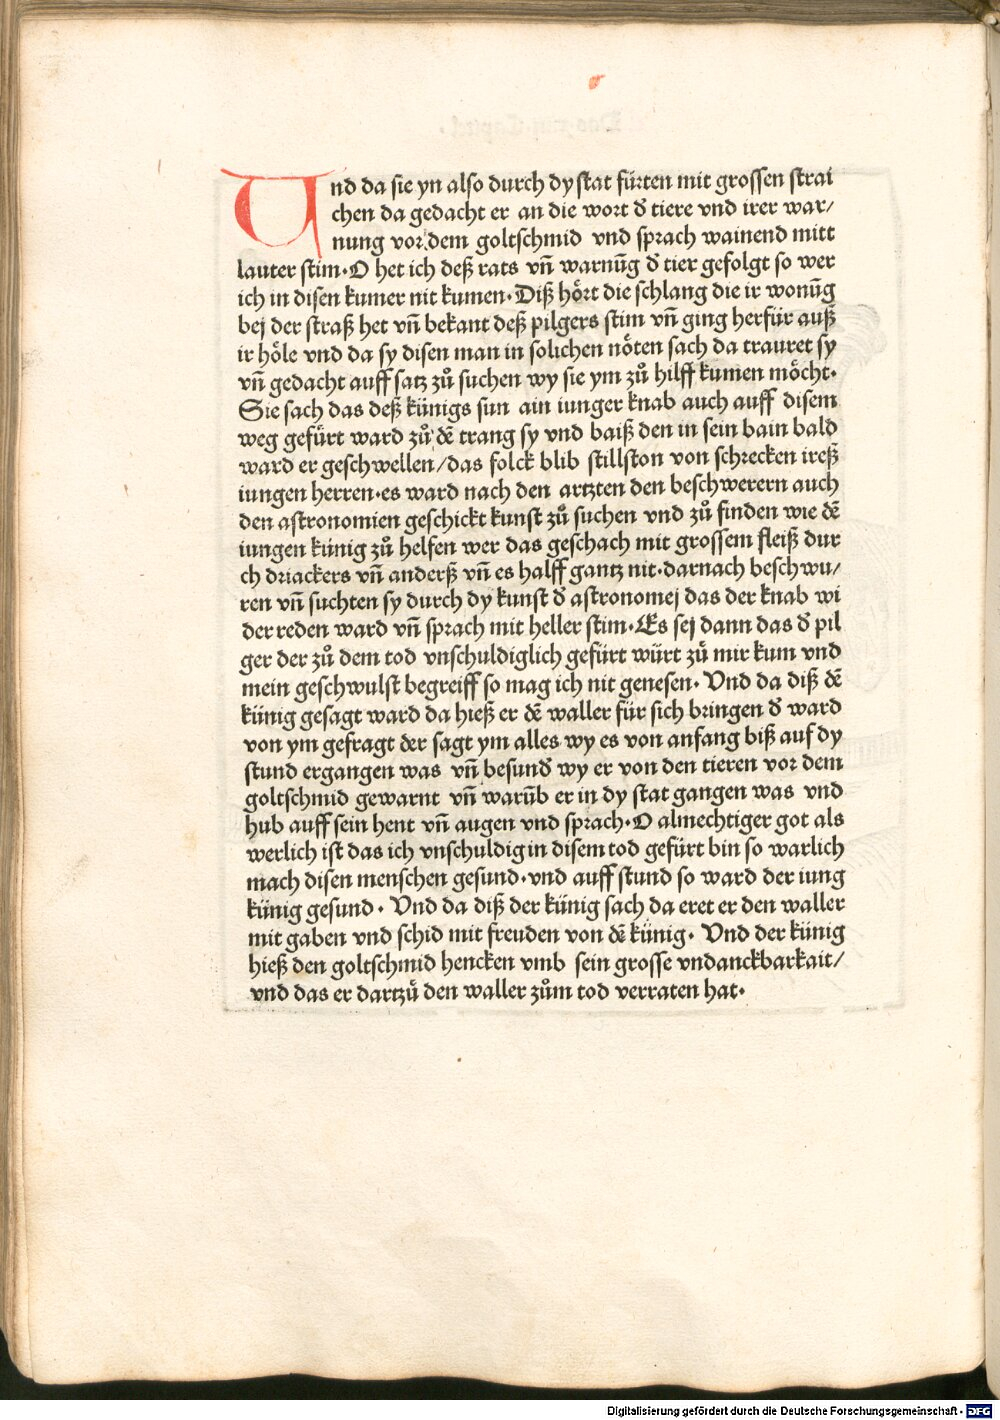 Und da sie yn also durch dy stat fürten mit grossen strai
chen da gedacht er an die wort d̄ tiere vnd irer war/
nung vor dem goltschmid vnd sprach wainend mitt
lauter stim·O het ich deß rats vñ warnūg d̄ tier gefolgt so wer
ich in disen kumer nit kumen·Diß hört die schlang die ir wonūg
bej der straß het vñ bekant deß pilgers stim vñ ging herfür auß
ir höle vnd da sy disen man in solichen nöten sach da trauret sy
vñ gedacht auff satz zů suchen wy sie ym zů hilff kumen möcht·
Sie sach das deß künigs sun ain iunger knab auch auff disem
weg gefürt ward zů dē trang sy vnd baiß den in sein bain bald
ward er geschwellen/das folck blib stillston von schrecken ireß
iungen herren·es ward nach den artzten den beschwerern auch
den astronomien geschickt kunst zů suchen vnd zů finden wie dē
iungen künig zů helfen wer das geschach mit grossem fleiß dur
ch driackers vñ anderß vñ es halff gantz nit·darnach beschwu/
ren vñ suchten sy durch dy kunst d̄ astronomej das der knab wi
der reden ward vñ sprach mit heller stim·Es sej dann das d̄ pil
ger der zů dem tod vnschuldiglich gefürt würt zů mir kum vnd
mein geschwulst begreiff so mag ich nit genesen· Vnd da diß dē
künig gesagt ward da hieß er dē waller für sich bringen d̄ ward
von ym gefragt der sagt ym alles wy es von anfang biß auf dy
stund ergangen was vñ besund̄ wy er von den tieren vor dem
goltschmid gewarnt vñ warūb er in dy stat gangen was vnd
hub auff sein hent vñ augen vnd sprach·O almechtiger got als
werlich ist das ich vnschuldig in disem tod gefürt bin so warlich
mach disen menschen gesund·vnd auff stund so ward der iung
künig gesund· Vnd da diß der künig sach da eret er den waller
mit gaben vnd schid mit freuden von dē künig· Vnd der künig
hieß den goltschmid hencken vmb sein grosse vndanckbarkait/
vnd das er dartzů den waller zům tod verraten hat·
Digitalisierung gefördert durch die Deutsche Forschungsgemeinschaft - DFG